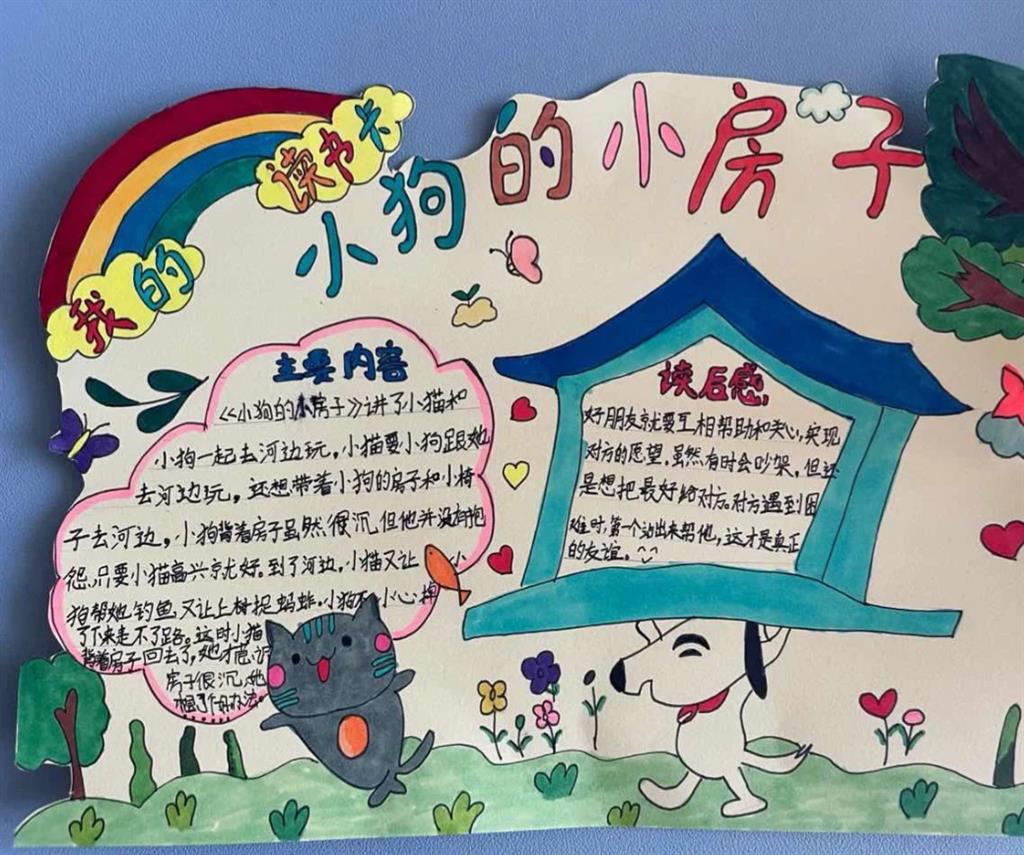 我的
读书卡
小狗的小房子
主要内容
《小狗的小房子》讲了小猫和
小狗一起去河边玩，小猫要小狗跟她
去河边玩，还想带着小狗的房子和小椅
子去河边，小狗背着房子虽然很沉，但他并没有抱
怨，只要小猫高兴就好。到了河边，小猫又让小
狗帮她钓鱼，又让上树捉蚂蚱。小狗不小心摔
了下来走不了路。这时小猫
背着房子回去了，她才意识
房子很沉，她
想了个好办法。
读后感
好朋友就要互相帮助和关心，实现
对方的愿望，虽然有时会吵架，但还
是想把最好给对方。对方遇到困
难时，第一个站出来帮他，这才是真正
的友谊。